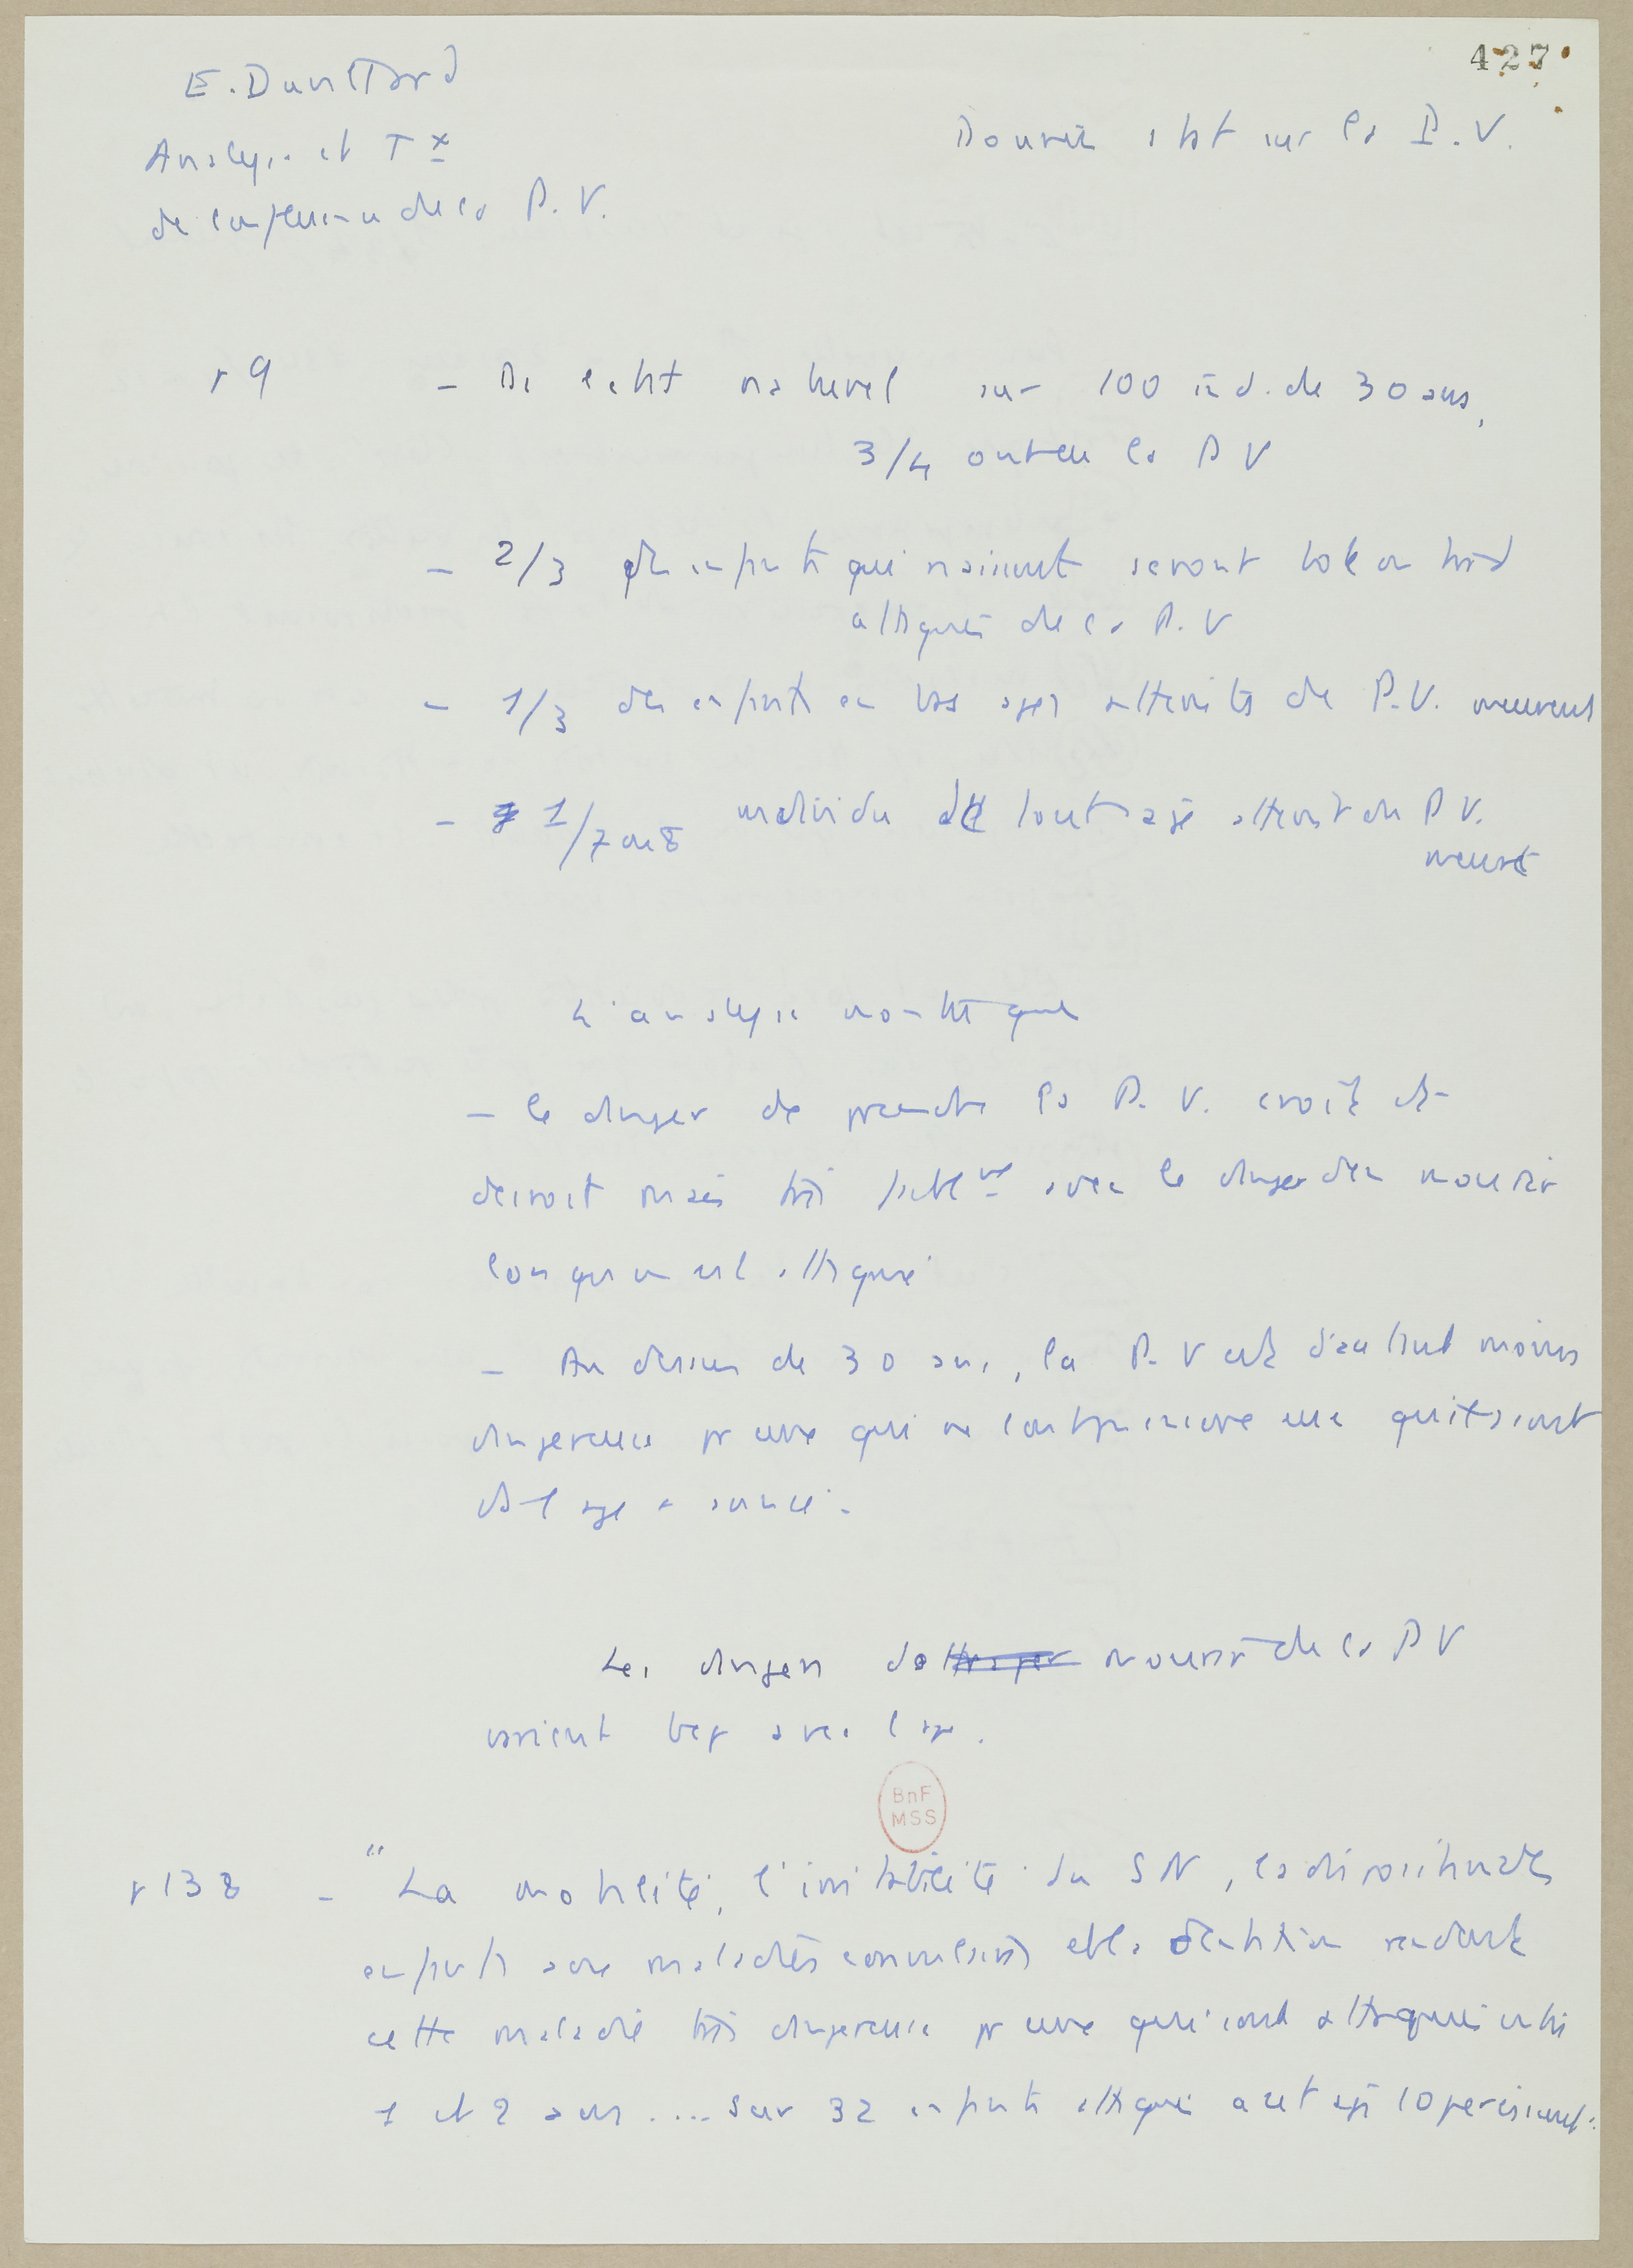 427
E. Duvillard
Analyse et Tx
de l'influence de la P.V.
Données stat sur la P.V.
p 9 - De l'etat naturel sur 100 ind. de 30 ans,
3/4 ont eu la PV
- 2/3 des enfants qui naissent seront tot ou tard
attaqués de la P.V
- 1/3 des enfants en bas age atteints de P.V. meurent
- 1/7 ou 8 individu de tout age atteint de PV.
meurt
L'analyse montre que
- le danger de prendre la P.V. croît et
decroit mais très avec le danger d'en mourir
lorsqu'on est attaqué
- Au dessus de 30 ans, la P.V est d'autant moins
dangereuse pr ceux qui ne l'ont pas encore eue qu'ils sont
d'1 age avancé.
Les dangers de mourir de la PV
varient bcp avec l'age.
p 138 - "La mobilité, l'irritabilité du SN, la dispositn des
enfants aux maladies convulsives et la dentition rendent
cette maladie très dangereuse pr ceux qui sont attaqués entre
1 et 2 ans .... sur 32 enfants attaqués a cet age 10 perissent".
BnF
MSS